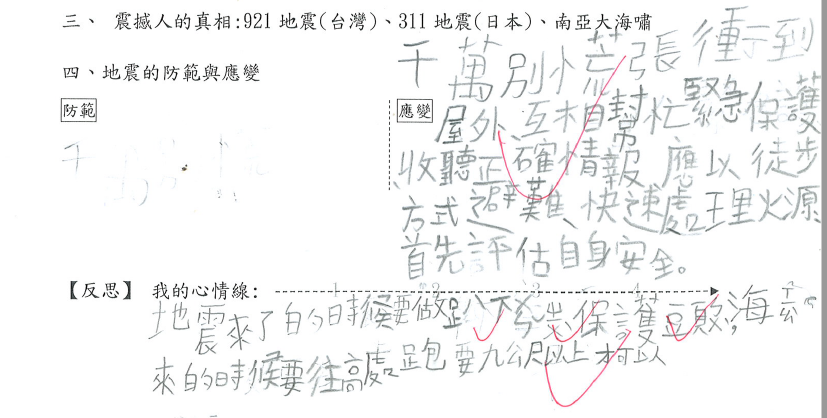 三、 震撼人的真相:921 地震(台灣)、311 地震(日本)、南亞大海嘯
四、地震的防範與應變
防範
應變
千萬別慌張衝到
屋外、互相幫忙緊急保護
收聽正確情報、應以徒步
方式避難、快速處理火源、
首先評估自身安全。
【反思】 我的心情線:
1 2 3 4
地震來了的時候要做趴下 保護頭,海
來的時候要往高處跑要九公尺以上才可以